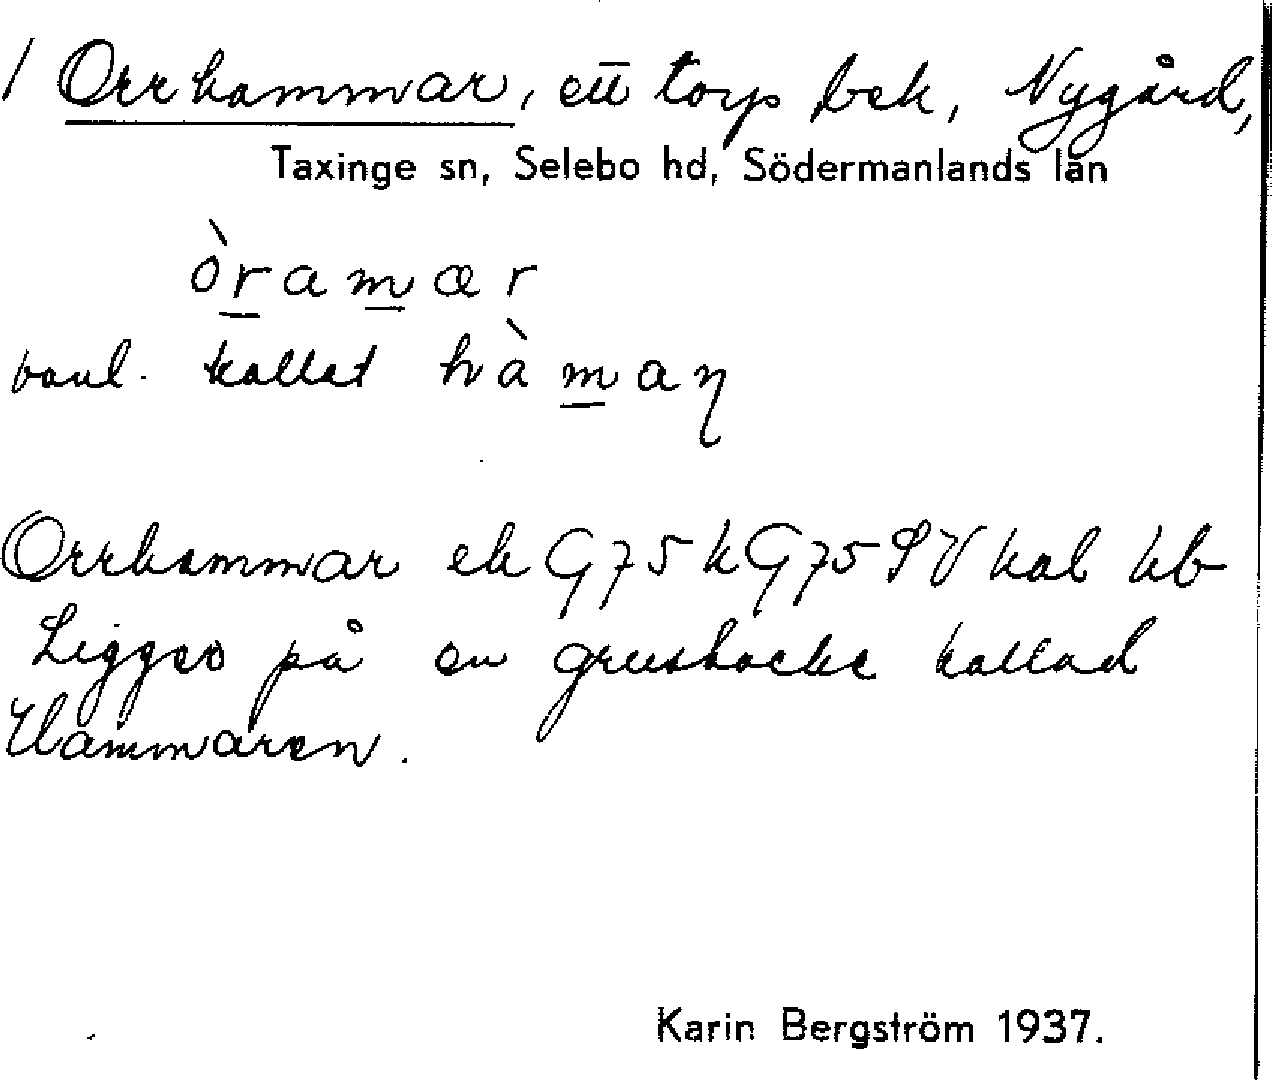 1 Orrhammar, ett torp bek, Nygård,
Taxinge sn, Selebo hd, Södermanlands län
òramær
vanl. kallat hàmaɳ
Orrhammar ek G75 k G75 SV kal kb
Ligger på en grusbacke kallad
Hammaren.
Karin Bergström 1937.